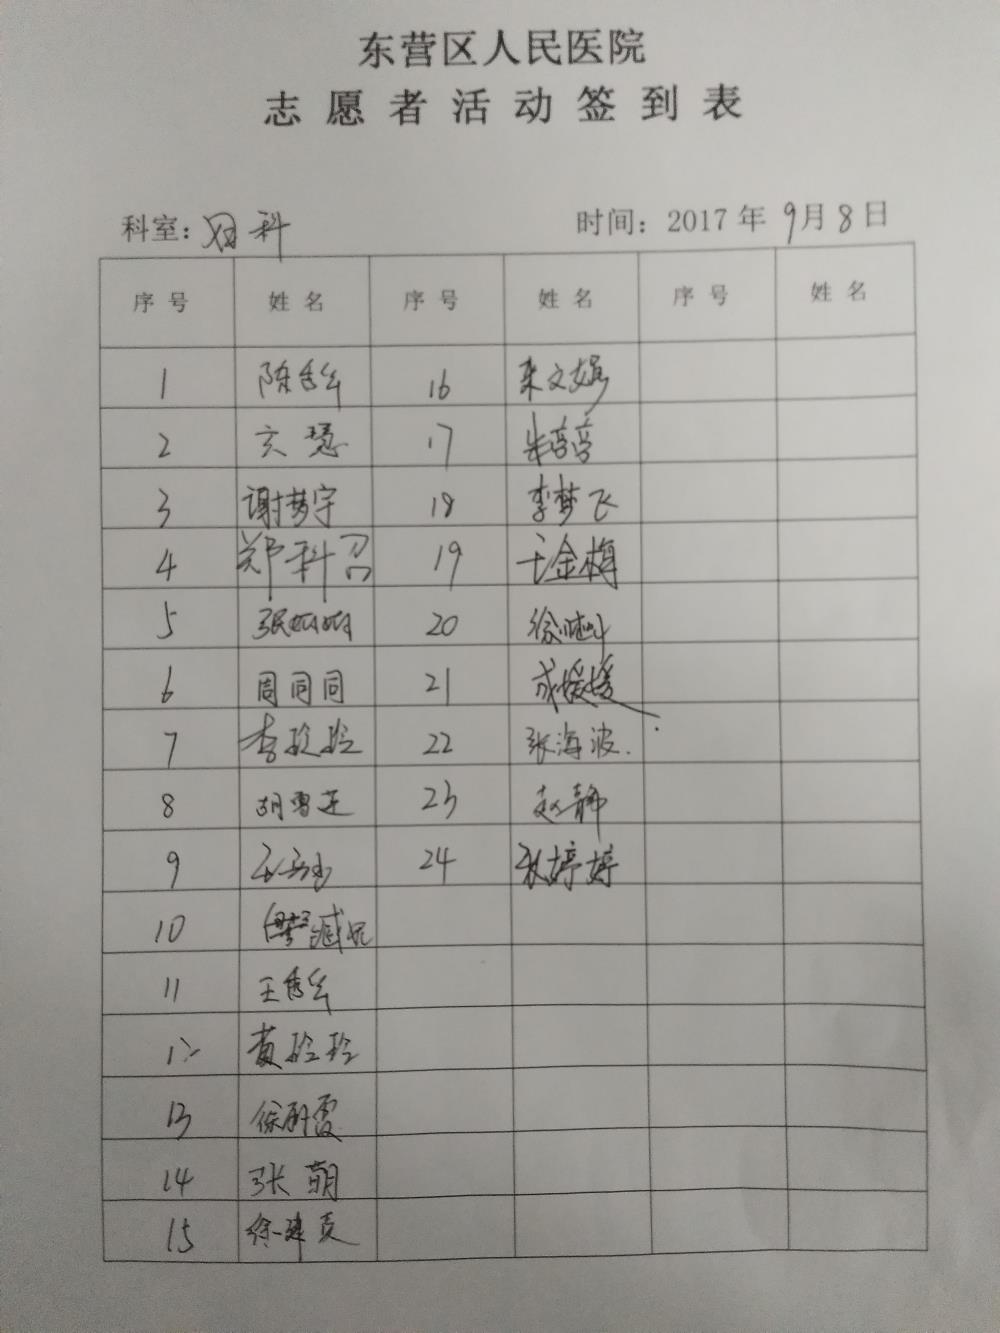 东营区人民医院
志愿者活动签到表
科室: 科 时间: 2017年9月8日
序号 姓名 序号 姓名 序号 姓名
1 陈秀 16 文娟
2 慧 17 朱莹莹
3 谢梦宇 18 李梦飞
4 郑科召 19 王金梅
5 张娟娟 20 徐
6 周同同 21 成媛媛
7 李玲玲 22 张海波.
8 胡雪莲 23 赵静
9 24 婷婷
10 臧妮
11 王秀
12 黄玲玲
13 徐丽霞
14 张萌
15 徐建真